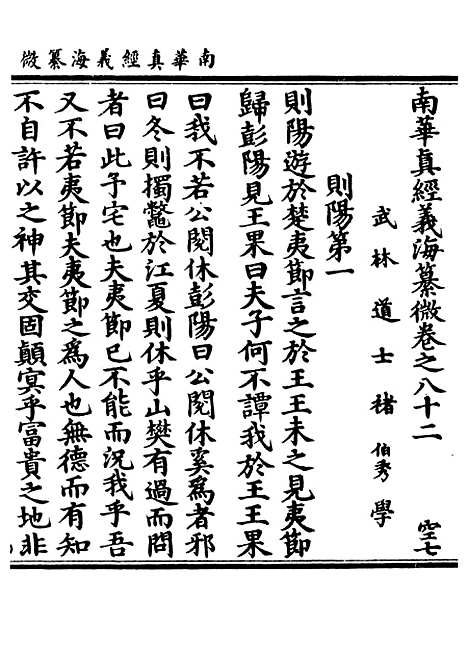 南華真經義海纂微
南華真經義海纂微卷之八十二 空七
武林道士褚伯秀學
則陽第一
則陽遊於楚夷節言之於王王未之見夷節
歸彭陽見王果曰夫子何不譚我於王王果
曰我不若公閱休彭陽曰公閱休奚為者邪
曰冬則擉鼈於江夏則休乎山樊有過而問
者曰此予宅也夫夷節已不能而況我乎吾
又不若夷節夫夷節之為人也無德而有知
不自許以之神其交固顛冥乎富貴之地非